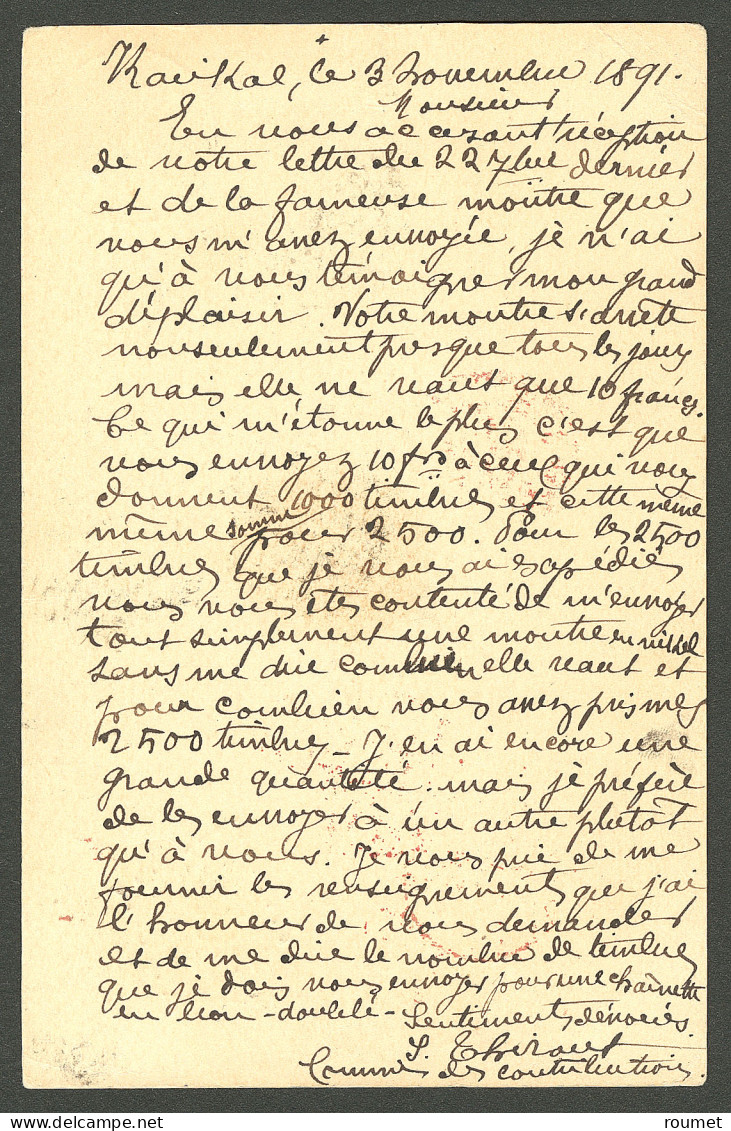 Karikal, le 3 novembre 1891.
Monsieur
En vous accusant réception
de votre lettre du 22 7bre dernier
et de la fameuse montre que
vous m'avez envoyée, je n'ai
qu'à vous témoigner mon grand
déplaisir. Votre montre s'arrête
non seulement presque tous les jours
mais elle ne vaut que 10 francs.
Ce qui m'étonne le plus c'est que
vous envoyez 10 frs à ceux qui vous
donnent 1000 timbres et cette même
même somme pour 2500. Pour les 2500
timbres que je vous ai expédiés
vous vous êtes contenté de m'envoyer
tout simplement une montre en nickel
sans me dire combien elle vaut et
pour combien vous avez pris mes
2500 timbres – J'en ai encore une
grande quantité. mais je préfère
de les envoyer à un autre plutôt
qu'à vous. Je vous prie de me
fournir les renseignements que j'ai
l'honneur de vous demander
et de me dire le nombre de timbres
que je dois vous envoyer pour une chaînette
en – doublé – Sentiments dévoués.
Commis des contributions.
roumet roumet